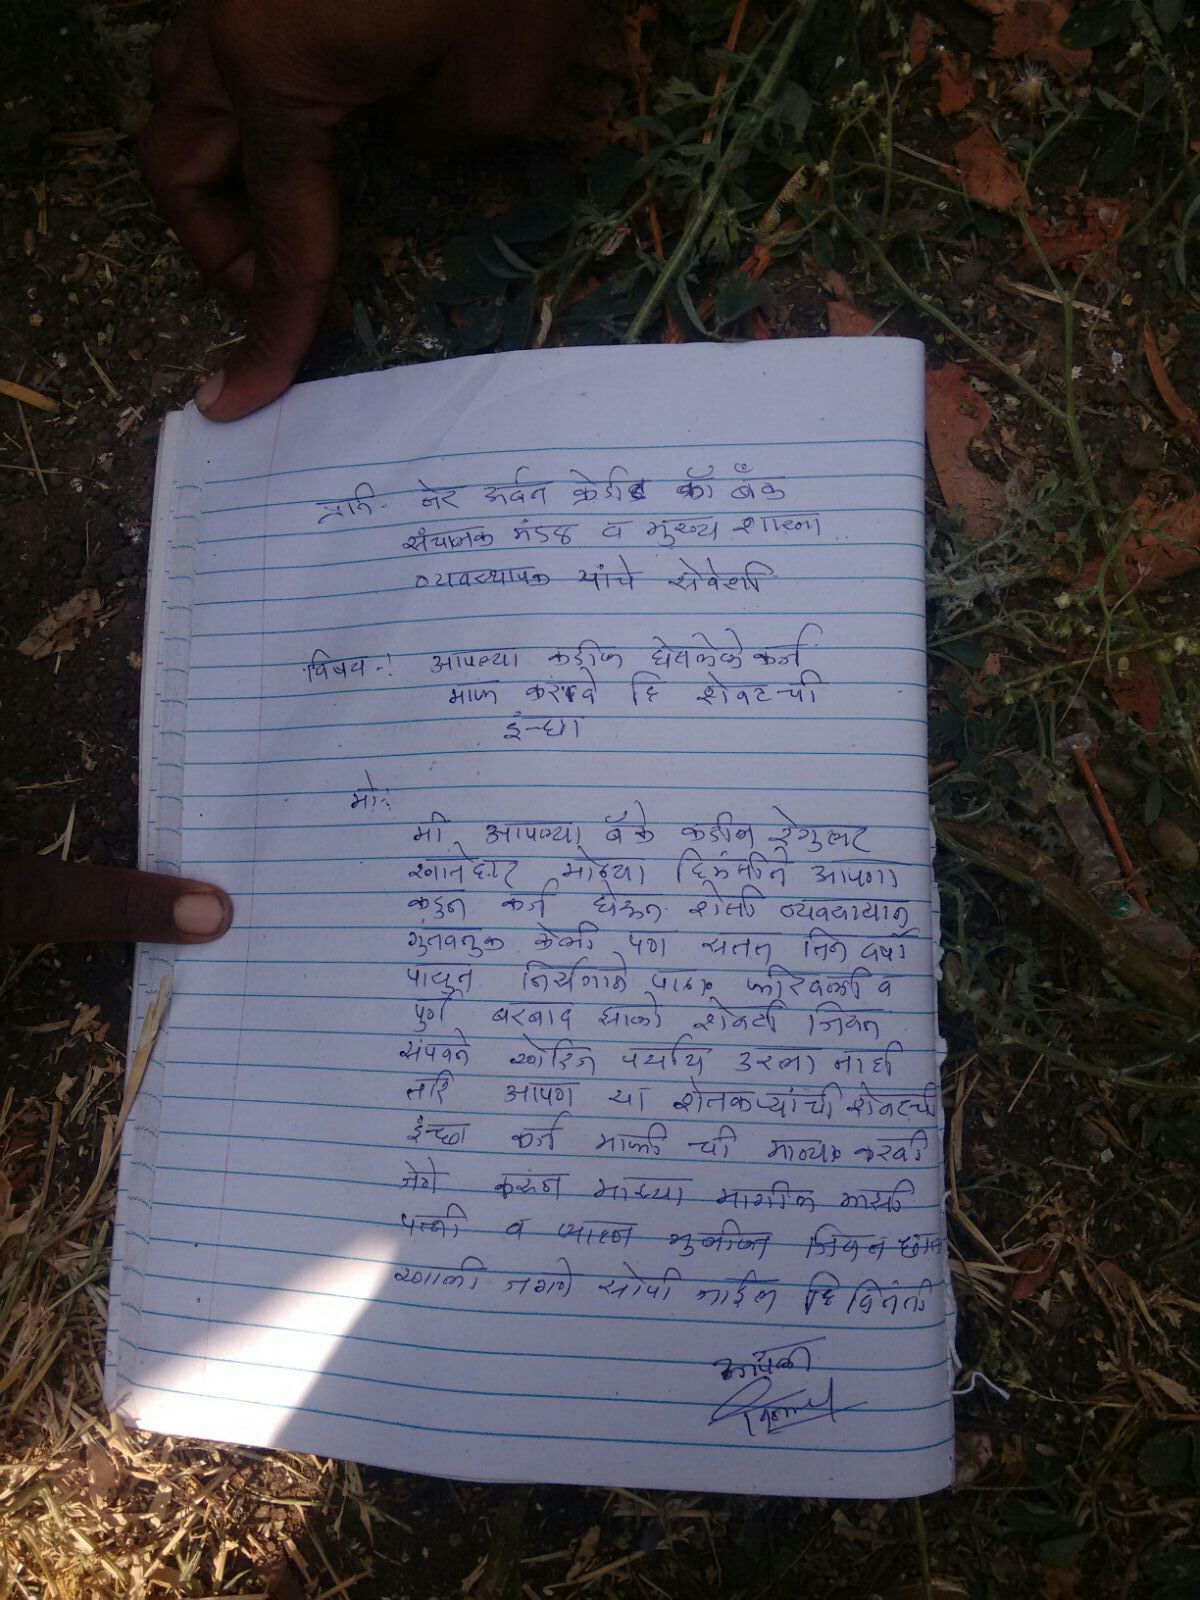 प्रति. नेर अर्बन क्रेडीट को बँक
संचालक मंडळ व मुख्य शाखा
व्यवस्थापक यांचे सेवेशी
विषय -: आपल्या कडील घेतलेले कर्ज
माफ करावे हि शेवटची
इच्छा
मो:
मी आपल्या बँके कडील रेगुलर
खातेदार माझ्या हिमंतीने आपणा
कडुन कर्ज घेऊन शेती व्यवसायात
गुंतवनुक केली पण सतत तिन वर्षा
पासुन निर्सगाने पाठ फीरवली व
पुर्ण बरबाद झालो शेवटी जिवन
संपवने खेरिज पर्याय उरला नाही
तरि आपण या शेतकऱ्यांची शेवटची
ईच्छा कर्ज माफी ची मान्य करवी
जेणे करुन माझ्या मागील माझी
पत्नी व लहान मुलीला जिवन
खाली जगणे सोपी जाईल हि विनंती
आपली